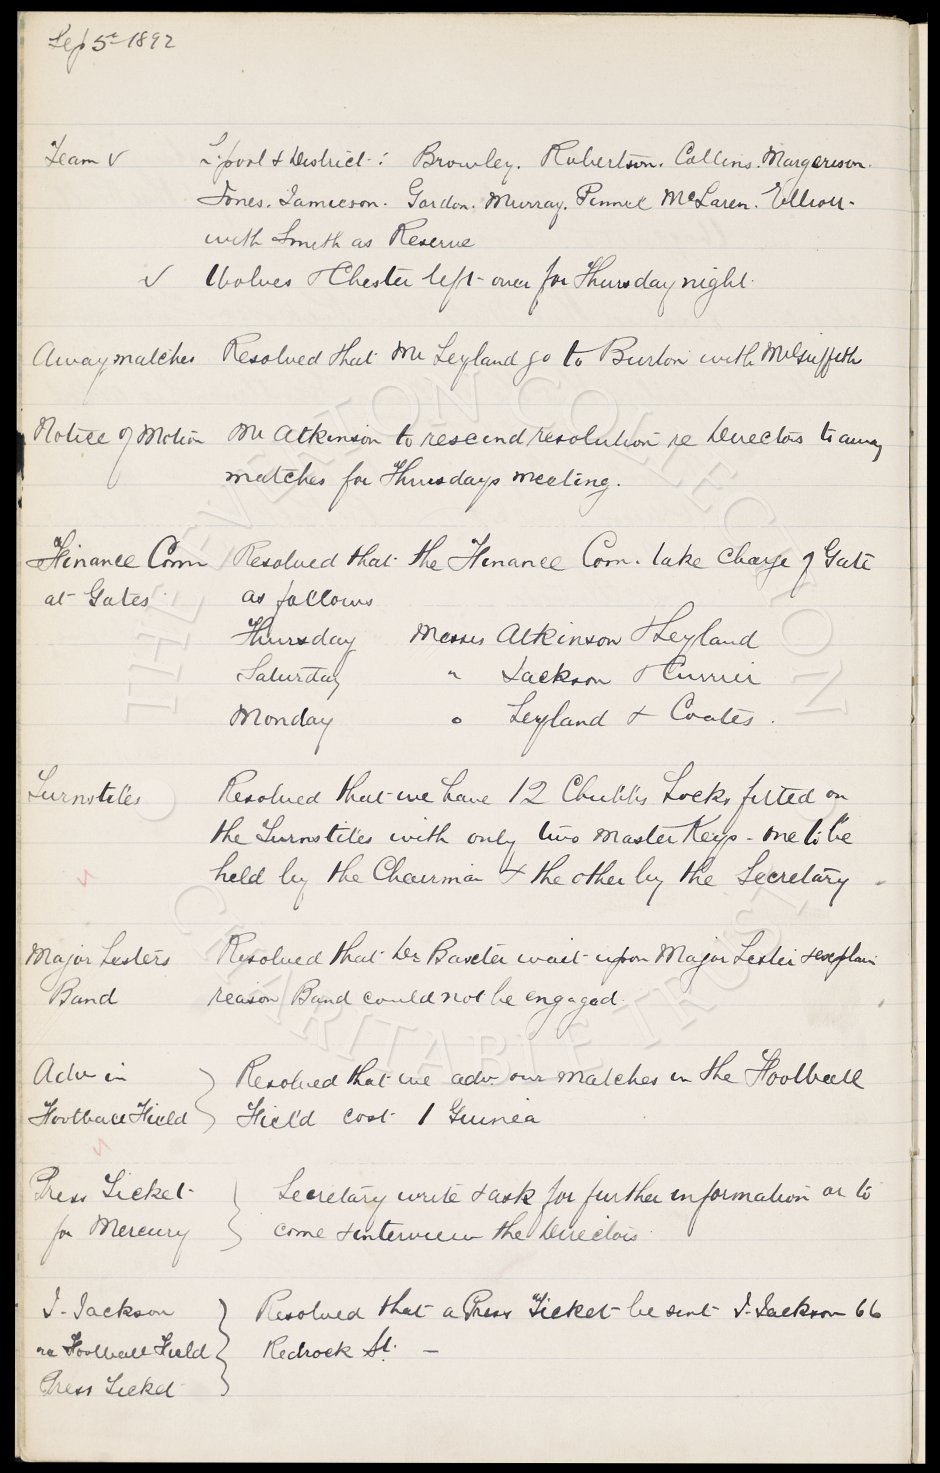 Sep 5th 1892
Team ✓ L'pool & District: Browley. Robertson. Collins. Margerison.
Jones. Jamieson. Gordon. Murray. Pinnel McLaren. Elliott.
with Smith as Reserve
✓ Wolves & Chester left over for Thursday night.
Away matches Resolved that Mr Leyland go to Burton with Mr Griffith
Notice of Motion Mr Atkinson to rescind resolution re Directors to away
matches for Thursdays meeting.
Finance Com Resolved that the Finance Com. take charge of Gate
at Gates as follows
Thursday Messrs Atkinson & Leyland
Saturday " Jackson & Currier
Monday " Leyland & Coates.
Turnstiles Resolved that we have 12 Chubb's Locks fitted on
the Turnstiles with only two Master Keys - one to be
held by the Chairman & the other by the Secretary
Major Lesters Resolved that Dr Baxter wait upon Major Lester & explain
Band reason Band could not be engaged.
Adv in Resolved that we adv. our matches in the Football
Football Field Field cost 1 Guinea
Press Ticket Secretary write & ask for further information or to
for Mercury come & interview the Directors
J. Jackson Resolved that a Press Ticket be sent J. Jackson 66
re Football Field Redrock St. -
Press Ticket
THE EVERTON COLLECTION
CHARITABLE TRUST